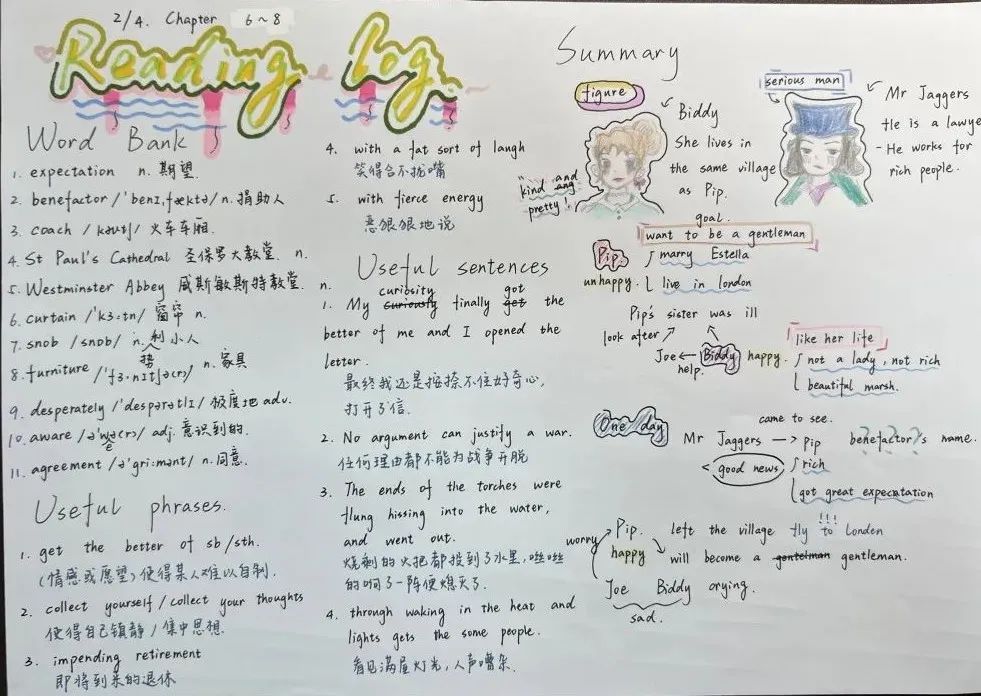 2/4. Chapter 6~8
Reading log
Word Bank
1. expectation n. 期望
2. benefactor /'benɪ,fæktə/ n. 捐助人
3. coach /kəutʃ/ 火车车厢.
4. St Paul's Cathedral 圣保罗大教堂. n.
5. Westminster Abbey 威斯敏斯特教堂. n.
6. curtain /'kɜ:tn/ 窗帘 n.
7. snob /snɒb/ n. 势利小人
8. furniture /'fɜ:nɪtʃə(r)/ n. 家具
9. desperately /'despərətlɪ/ 极度地 adv.
10. aware /ə'weə(r)/ adj. 意识到的.
11. agreement /ə'gri:mənt/ n. 同意.
Useful phrases.
1. get the better of sb/sth.
(情感或愿望)使得某人难以自制.
2. collect yourself / collect your thoughts
使得自己镇静/集中思想.
3. impending retirement
即将到来的退休
4. with a fat sort of laugh
笑得合不拢嘴
5. with fierce energy
恶狠狠地说
Useful sentences
1. My curiously curiosity finally get got the
better of me and I opened the
letter.
最终我还是按捺不住好奇心,
打开了信.
2. No argument can justify a war.
任何理由都不能为战争开脱
3. The ends of the torches were
flung hissing into the water,
and went out.
烧剩的火把都投到了水里,咝咝
的响了一阵便熄灭了.
4. through waking in the heat and
lights gets the some people.
看见满屋灯光,人声嘈杂.
Summary
figure
Biddy
She lives in
the same village
as Pip.
"kind and
pretty!"
serious man
Mr Jaggers
He is a lawye
- He works for
rich people.
goal.
want to be a gentleman
Pip.
unhappy.
marry Estella
live in london
Pip's sister was ill
look after
Joe ← Biddy happy.
help.
like her life
not a lady, not rich
beautiful marsh.
One day
came to see.
Mr Jaggers → Pip
benefactor's name.
???
< good news
rich
got great expecatation
!!!
Pip. left the village fly to Londen
worry
happy will become a gentelman gentleman.
Joe Biddy crying.
sad.